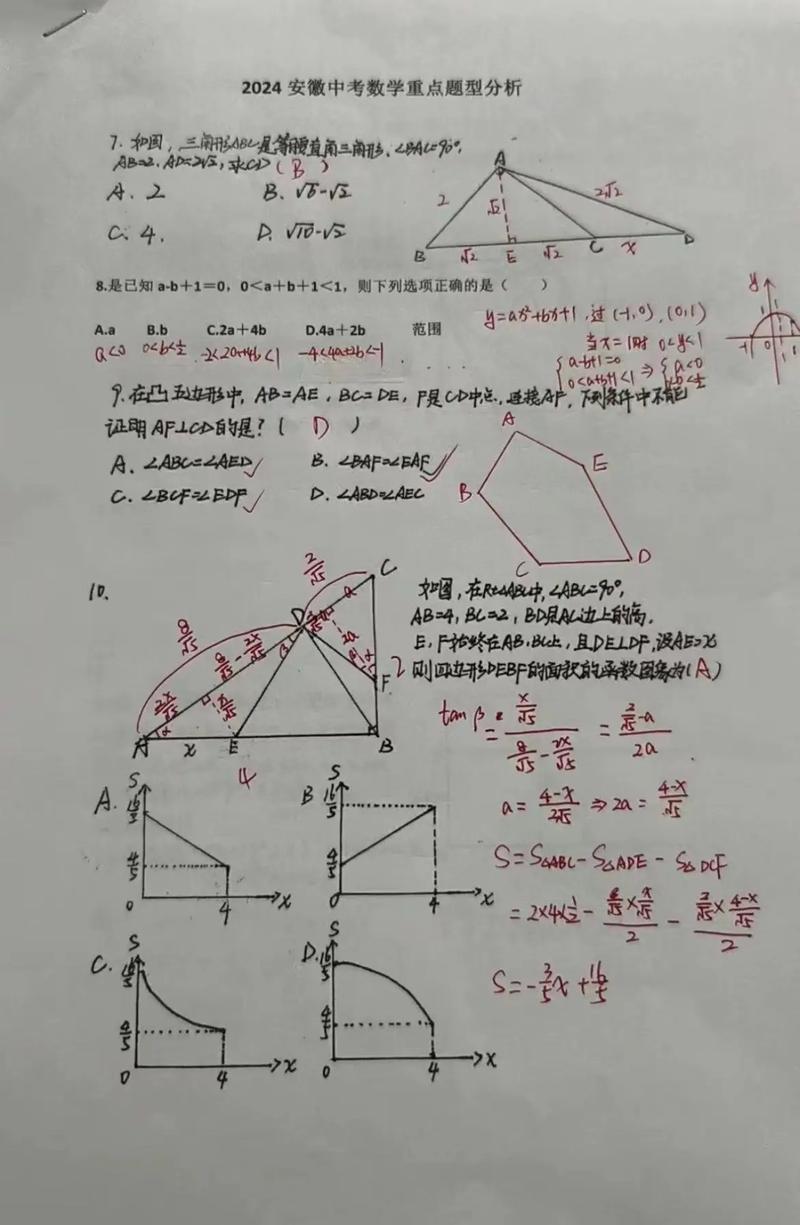 2024 安徽中考数学重点题型分析
7. 如图, 三角形ABC是等腰直角三角形, ∠BAC=90°,
AB=2, AD=2√2, 求CD ( B )
A. 2 B. √6-√2
C. 4. D. √10-√2
A
2
√2
2√2
B √2 E √2 C x D
8.是已知 a-b+1=0, 0<a+b+1<1, 则下列选项正确的是 ( )
A.a B.b C.2a+4b D.4a+2b 范围
a<0 0<b<1/2 -2<2a+4b<1 -4<4a+2b<-1
y=ax²+bx+1, 过 (-1,0), (0,1)
当x=1时 0<y<1
{a-b+1=0
0<a+b+1<1 ⇒ {a<0
b<1/2
y
1
-1 0 1
9. 在凸五边形中, AB=AE, BC=DE, F是CD中点, 连接AF, 下列条件中不能
证明 AF⊥CD的是? ( D )
A. ∠ABC=∠AED✓ B. ∠BAF=∠EAF✓
C. ∠BCF=∠EDF✓ D. ∠ABD=∠AEC
A
E
B
C D
10.
如图, 在Rt△ABC中, ∠ABC=90°,
AB=4, BC=2, BD是AC边上的高,
E, F始终在AB, BC上, 且DE⊥DF, 设AE=x
则四边形DEBF的面积的函数图象为 (A)
2/√5 C
a
D
8/√5
8/√5-2x/√5
β
2a
α
F 2
2x/√5
x/√5
α
A x E B
4
tanβ = (x/√5)/(8/√5-2x/√5) = (2/√5-a)/2a
a=(4-x)/2√5 ⇒ 2a=(4-x)/√5
S=S△ABC-S△ADE-S△DCF
=2×4×1/2-(8/√5×x/√5)/2-(2/√5×(4-x)/√5)/2
S=-3/5x+16/5
A. S 16/5 4/5 0 4 x
B S 16/5 4/5 0 4 x
C. S 16/5 4/5 0 4 x
D. S 16/5 4/5 0 4 x